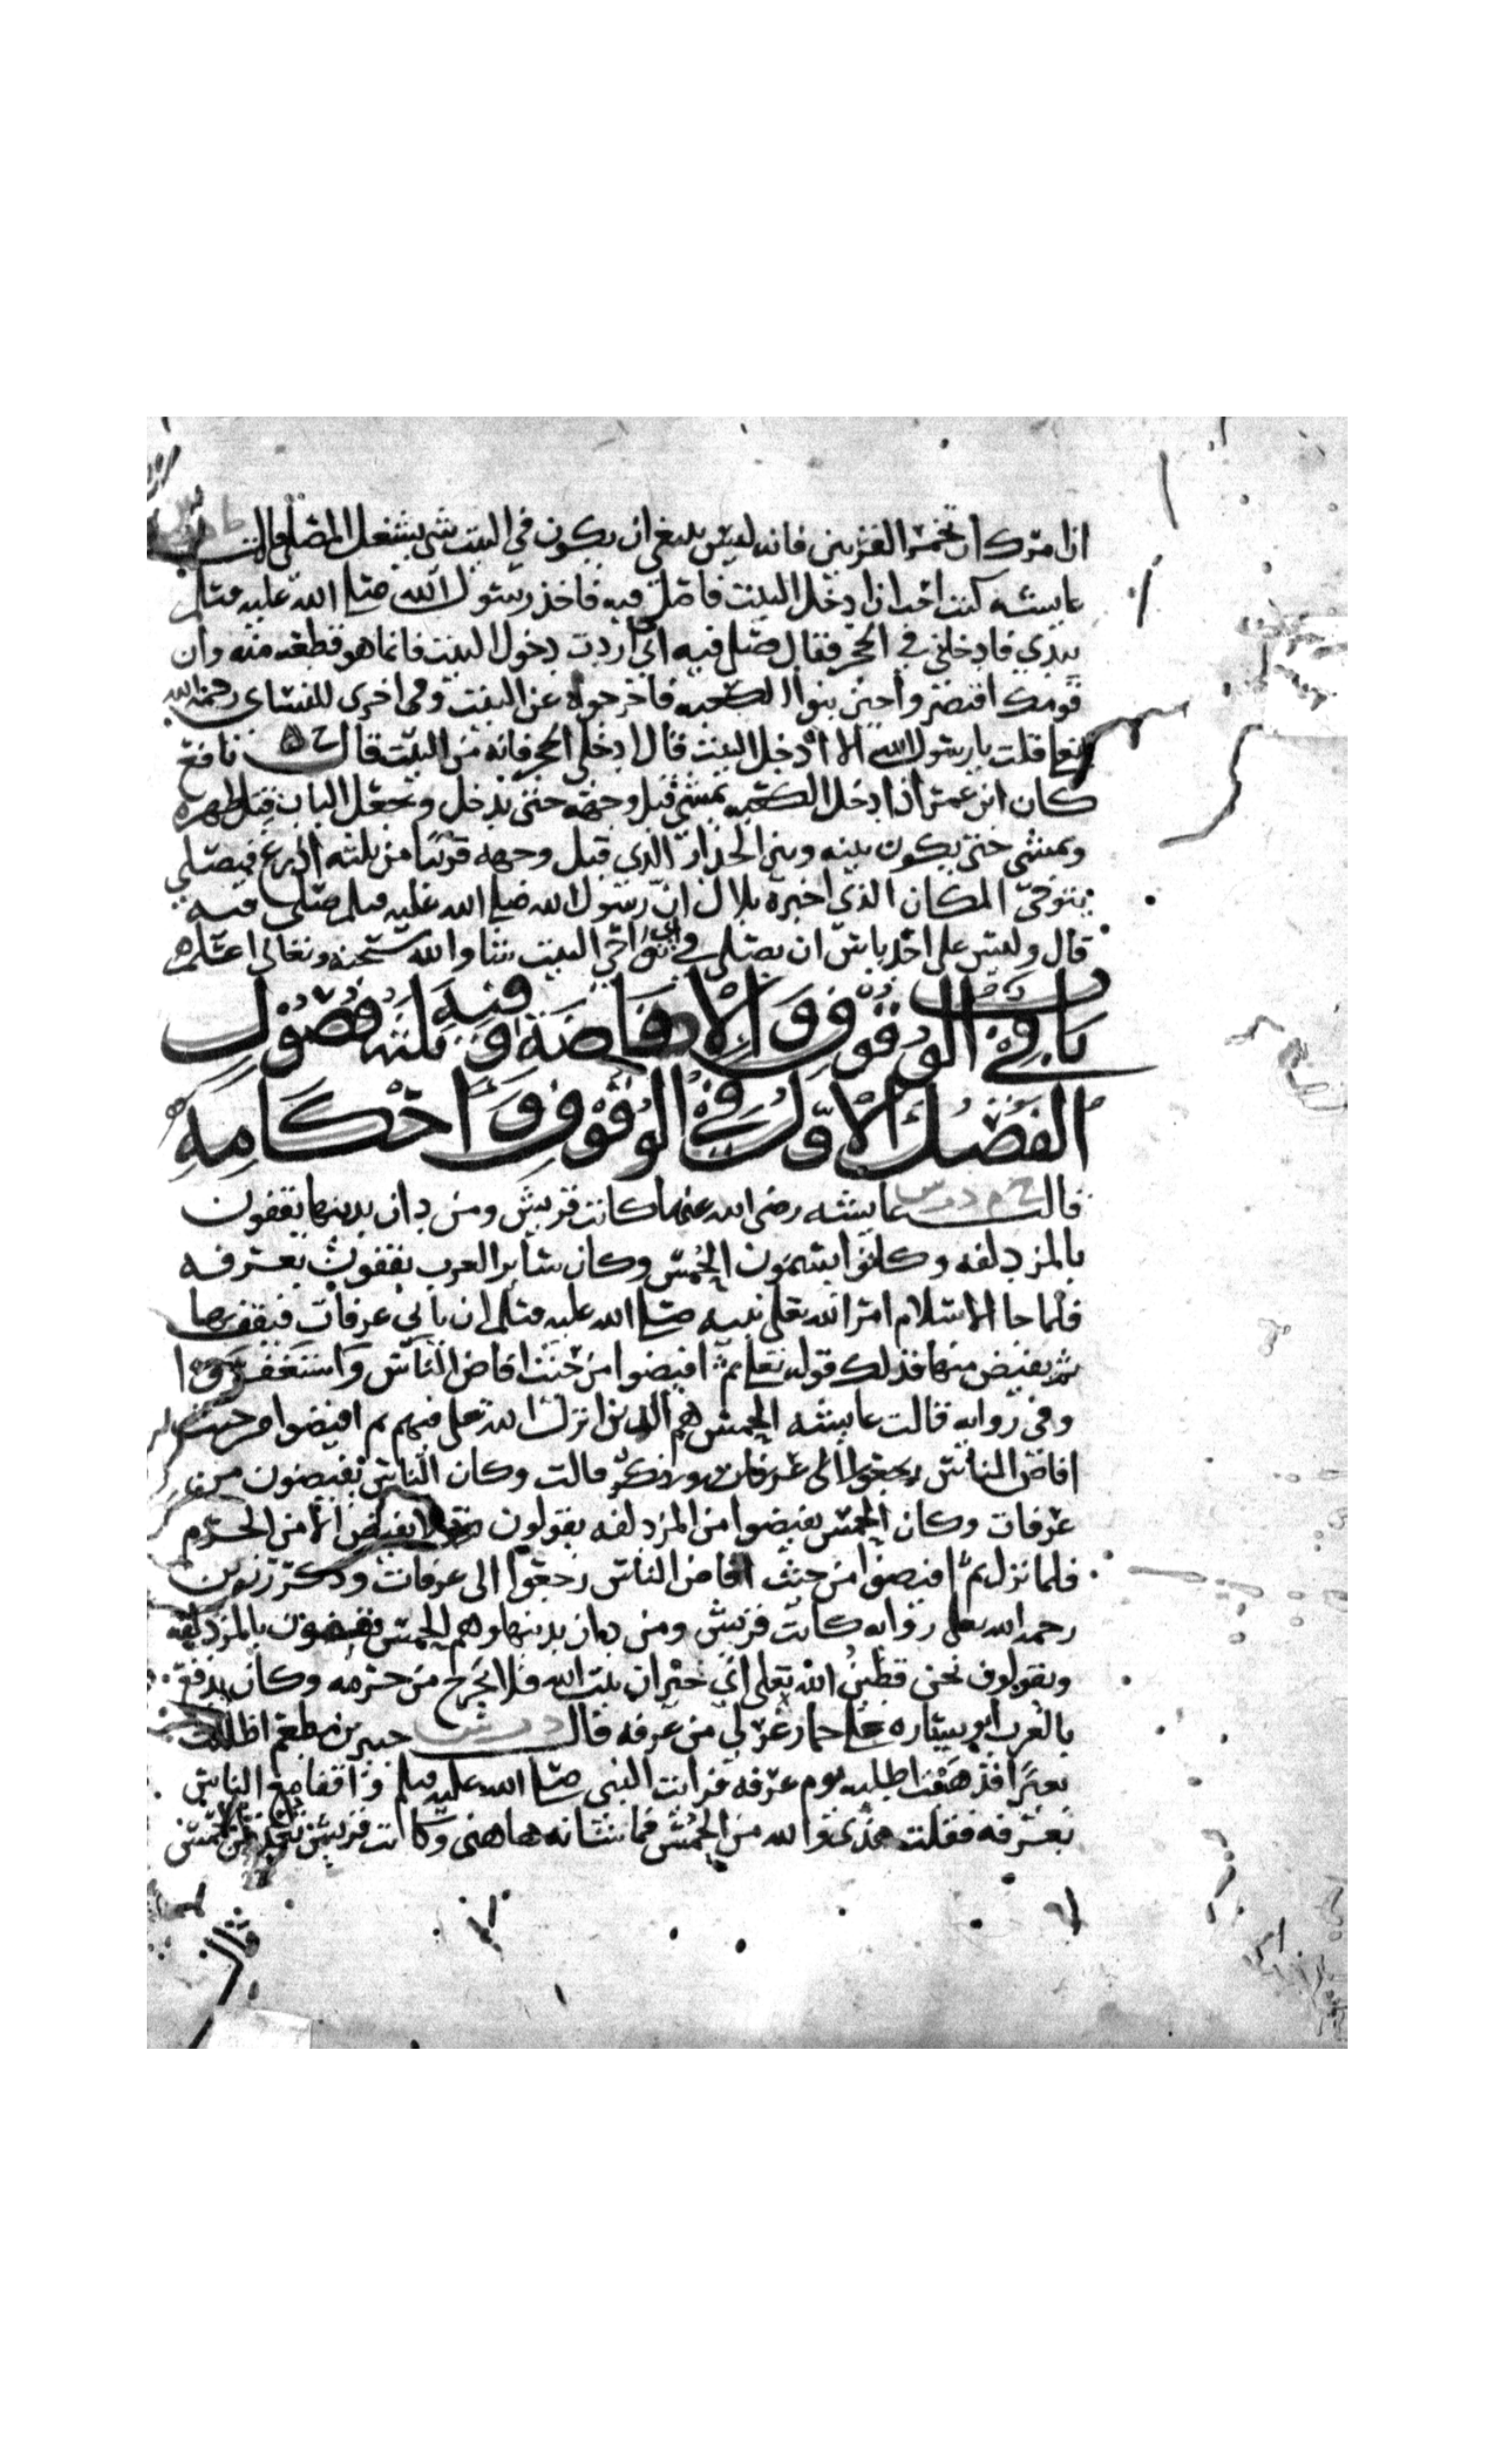 ان امرك ان تخمر القرنين فانه ليس ينبغي ان يكون في البيت شي يشغل المصلي قالت
عايشه كنت احب ان ادخل البيت فاصلي فيه فاخذ رسول الله صلى الله عليه وسلم
بيدي فادخلني في الحجر فقال صلي فيه ان اردت دخول البيت فانما هو قطعه منه وان
قومك اقتصروا حين بنوا الكعبه فاخرجوه عن البيت وفي اخرى للنساي رحمه الله
قلت يا رسول الله الا ادخل البيت قال ادخلي الحجر فانه من البيت قال نافع
كان ابن عمر اذا دخل الكعبه يمشي قبل وجهه حين يدخل ويجعل الباب قبل ظهره
ويمشي حتى يكون بينه وبين الجدار الذي قبل وجهه قريبا من ثلثه اذرع فيصلي
يتوخى المكان الذي اخبره بلال ان رسول الله صلى الله عليه وسلم صلى فيه
قال وليس على احد باس ان يصلي في اي نواحي البيت شا والله سبحنه وتعالى اعلم
باب في الوقوف والافاضة وفيه ثلثه فصول
الفصل الاول في الوقوف واحكامه
قالت عايشه رضي الله عنها كانت قريش ومن دان بدينها يقفون
بالمزدلفه وكانوا يسمون الحمس وكان ساير العرب يقفون بعرفه
فلما جا الاسلام امر الله تعلى نبيه صلى الله عليه وسلم ان ياتي عرفات فيقف بها
ثم يفيض منها فذلك قوله تعلى ثم افيضوا من حيث افاض الناس واستغفروا
وفي روايه قالت عايشه الحمس هم الذين انزل الله تعلى فيهم ثم افيضوا من حيث
افاض الناس قالت وكان الناس يفيضون من
عرفات وكان الحمس يفيضوا من المزدلفه يقولون لا نفيض الا من الحرم
فلما نزل ثم افيضوا من حيث افاض الناس رجعوا الى عرفات وذكر رزين
رحمه الله تعلى روايه كانت قريش ومن دان بدينها وهم الحمس يقفون بالمزدلفه
ويقولون نحن قطين الله تعلى اي جيران بيت الله فلا نخرج من حرمه وكان يدفع
بالعرب ابو سياره على حمار عربي من عرفه قال جبير بن مطعم اظللت
بعيرا فذهبت اطلبه يوم عرفه فرايت النبي صلى الله عليه وسلم واقفا مع الناس
بعرفه فقلت هذا والله من الحمس فما شانه هاهنى وكانت قريش تعد من الحمس